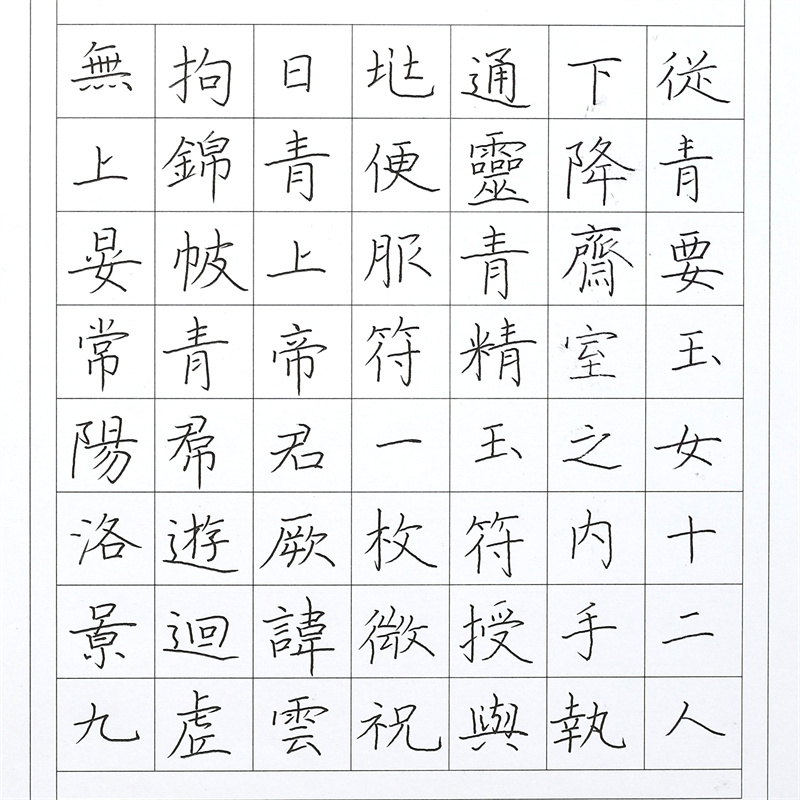 從青要玉女十二人
下降齋室之内手執
通靈青精玉符授與
兆便服符一枚微祝
曰青上帝君厥諱雲
拘錦帔青帬遊迴虛
無上晏常陽洛景九